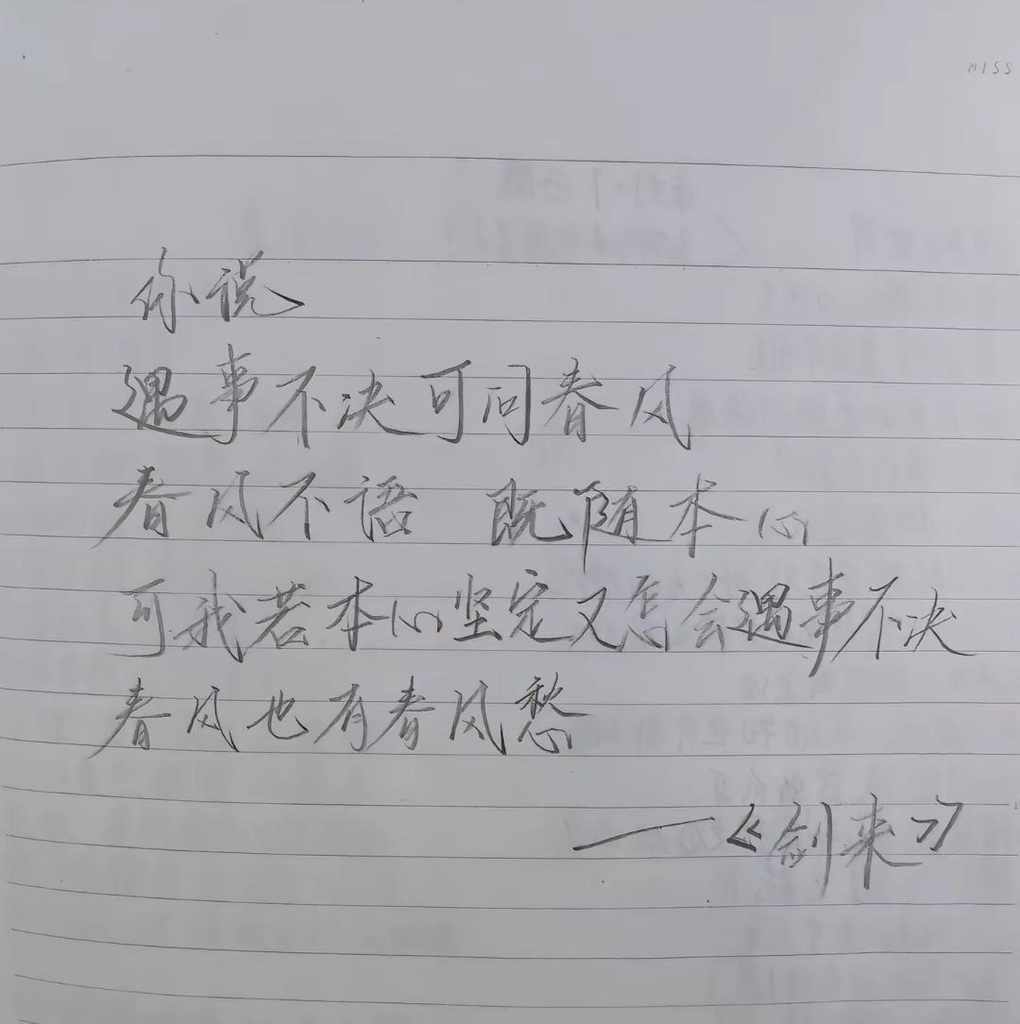 MISS
你说
遇事不决可问春风
春风不语 既随本心
可我若本心坚定又怎会遇事不决
春风也有春风愁
——《剑来》